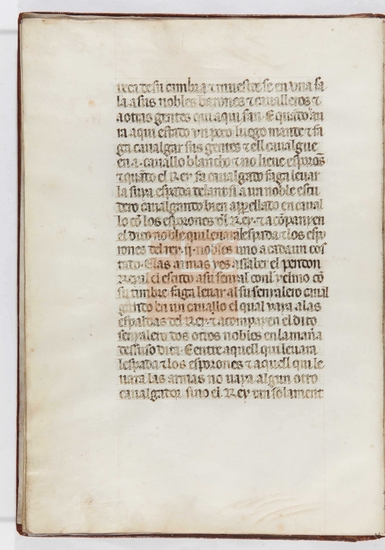 reca de su cimbra τ muestre se en una sa
la a sus nobles barones τ cavalleros τ
a otras gentes qui aqui san. E quando au
ra aqui estado un poco luego mante τ fa
ga cavalgar sus gentes τ ell cavalgue
en .i. cavallo blancho τ no lieve esporos
τ quando el Rey sia cavalgado faga levar
la suya espada delant si a un noble escu
dero cavalgando bien appellado en caval
lo con los esporones del Rey. τ acompanyen
el dito noble qui levara lespada τ los espo
rones del rey .ii. nobles uno a cada un cos
tado. E las armas yes assaber el pendon
Reyal el escudo a su senyal con lyelmo con
su timbre. faga levar al su senyalero caval
gando en un cavallo el qual vaya a las
espaldas del Rey. τ acompanyen el dito
senyalero dos otros nobles en la manera
dessuso dita. E entre aquell qui levara
lespada τ los esporones τ aquell qui le
vara las armas no vaya algun otro
cavalgador sino el Rey tan solament